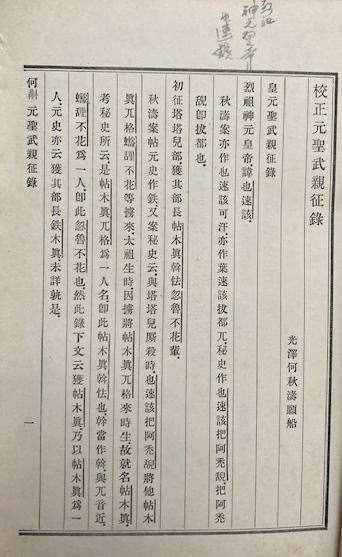 烈祖
神元皇帝
也速該
校正元聖武親征錄
光澤何秋濤願船
皇元聖武親征錄
烈祖神元皇帝諱也速該
秋濤案亦作也速該可汗.亦作葉速該拔都.元秘史作也速該把阿禿.把阿禿
卽拔都也.
初征塔塔兒部獲其部長帖木眞斡怯忽魯不花輩.
秋濤案帖元史作鐵.又案秘史云.與塔塔兒厮殺時.也速該把阿禿將他帖木
眞兀格.不花等擄來.太祖生時.因擄將帖木眞兀格來時生.故就名帖木眞.
考秘史所云.是帖木眞兀格爲一人名.卽此帖木眞斡怯也.斡當作斡.與兀音近.
不花爲一人.卽此忽魯不花也.然此錄下文云獲帖木眞.乃以帖木眞爲一
人.元史亦云獲其部長鉄木眞.未詳孰是.
何斠元聖武親征錄
一